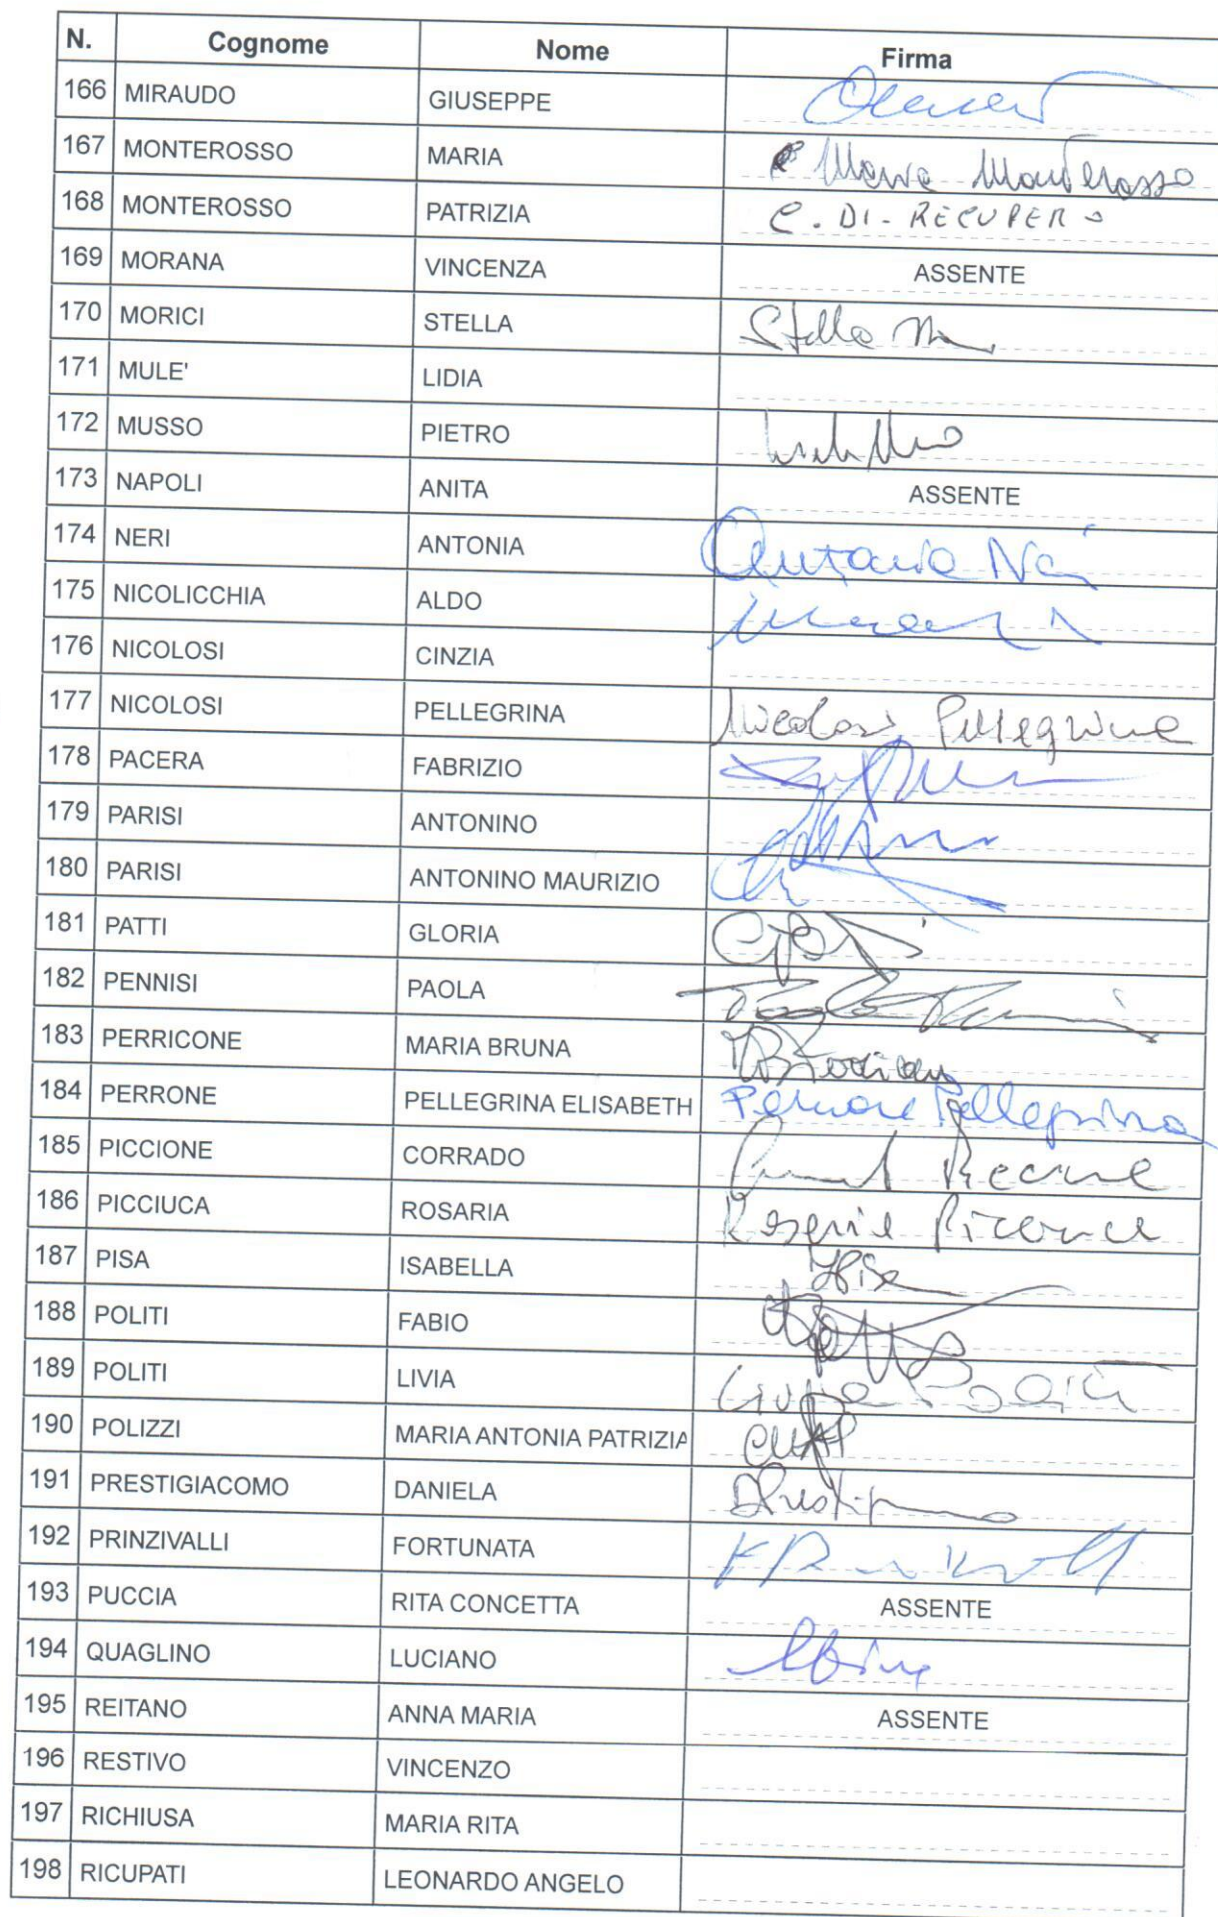 N. Cognome Nome Firma
166 MIRAUDO GIUSEPPE
167 MONTEROSSO MARIA Maria Monterosso
168 MONTEROSSO PATRIZIA C. DI - RECUPERO
169 MORANA VINCENZA ASSENTE
170 MORICI STELLA Stella M
171 MULE' LIDIA
172 MUSSO PIETRO
173 NAPOLI ANITA ASSENTE
174 NERI ANTONIA Antonia Neri
175 NICOLICCHIA ALDO
176 NICOLOSI CINZIA
177 NICOLOSI PELLEGRINA Nicolosi Pellegrina
178 PACERA FABRIZIO
179 PARISI ANTONINO
180 PARISI ANTONINO MAURIZIO
181 PATTI GLORIA
182 PENNISI PAOLA Paola Pennisi
183 PERRICONE MARIA BRUNA
184 PERRONE PELLEGRINA ELISABETH Perrone Pellegrina
185 PICCIONE CORRADO
186 PICCIUCA ROSARIA Rosaria Picciuca
187 PISA ISABELLA IPisa
188 POLITI FABIO
189 POLITI LIVIA Livia Politi
190 POLIZZI MARIA ANTONIA PATRIZIA
191 PRESTIGIACOMO DANIELA
192 PRINZIVALLI FORTUNATA
193 PUCCIA RITA CONCETTA ASSENTE
194 QUAGLINO LUCIANO
195 REITANO ANNA MARIA ASSENTE
196 RESTIVO VINCENZO
197 RICHIUSA MARIA RITA
198 RICUPATI LEONARDO ANGELO